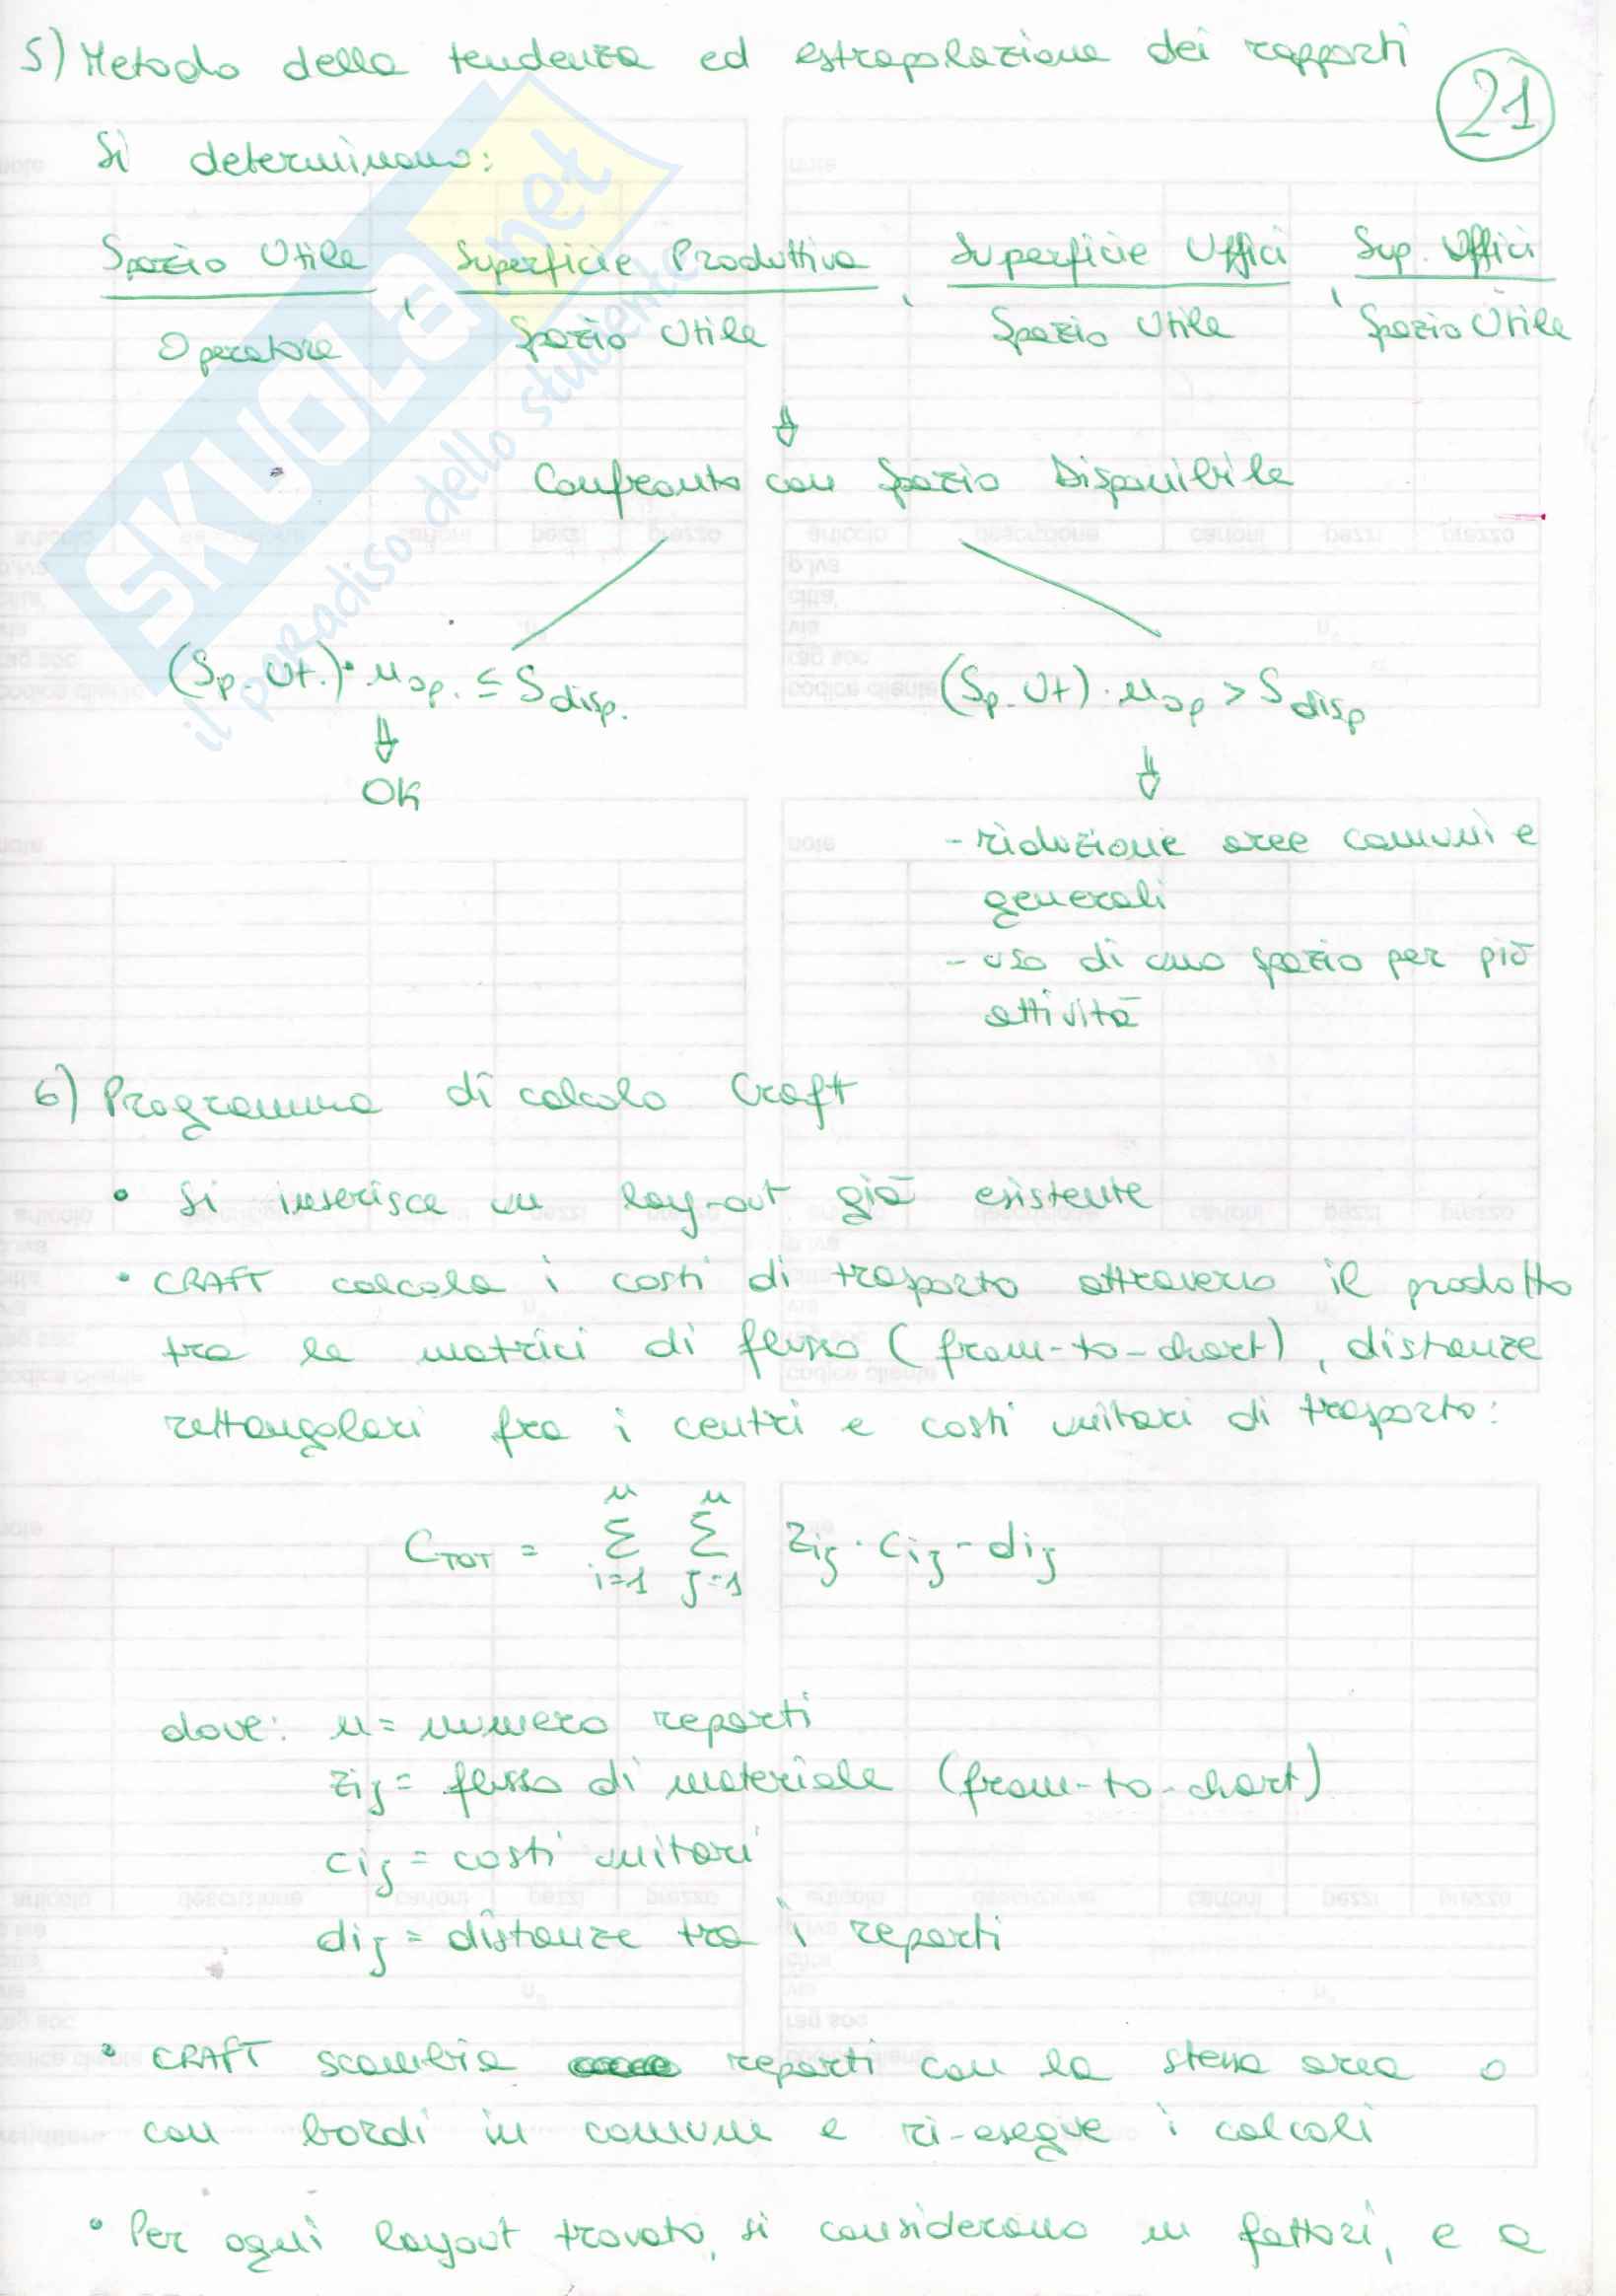 5) Metodo della tendenza ed estrapolazione dei rapporti
21
Si determinano:
Spazio Utile / Operatore, Superficie Produttiva / Spazio Utile, Superficie Uffici / Spazio Utile, Sup. Uffici / Spazio Utile
⇓
Confronto con Spazio Disponibile
(Sp. Ut.) · nop. ≤ Sdisp.
(Sp. Ut) · nop > Sdisp
⇓
OK
⇓
- riduzione aree comuni e
generali
- uso di uno spazio per più
attività
6) Programma di calcolo Craft
• Si inserisce un lay-out già esistente
• CRAFT calcola i costi di trasporto attraverso il prodotto
tra le matrici di flusso (from-to-chart), distanze
rettangolari fra i centri e costi unitari di trasporto:
CTOT = Σ(i=1 … n) Σ(j=1 … n) zij · cij · dij
dove: n = numero reparti
zij = flusso di materiale (from-to-chart)
cij = costi unitari
dij = distanze tra i reparti
• CRAFT scambia reparti con la stessa area o
con bordi in comune e ri-esegue i calcoli
• Per ogni layout trovato, si considerano m fattori, e a
SKUOLA.net
il paradiso dello studente